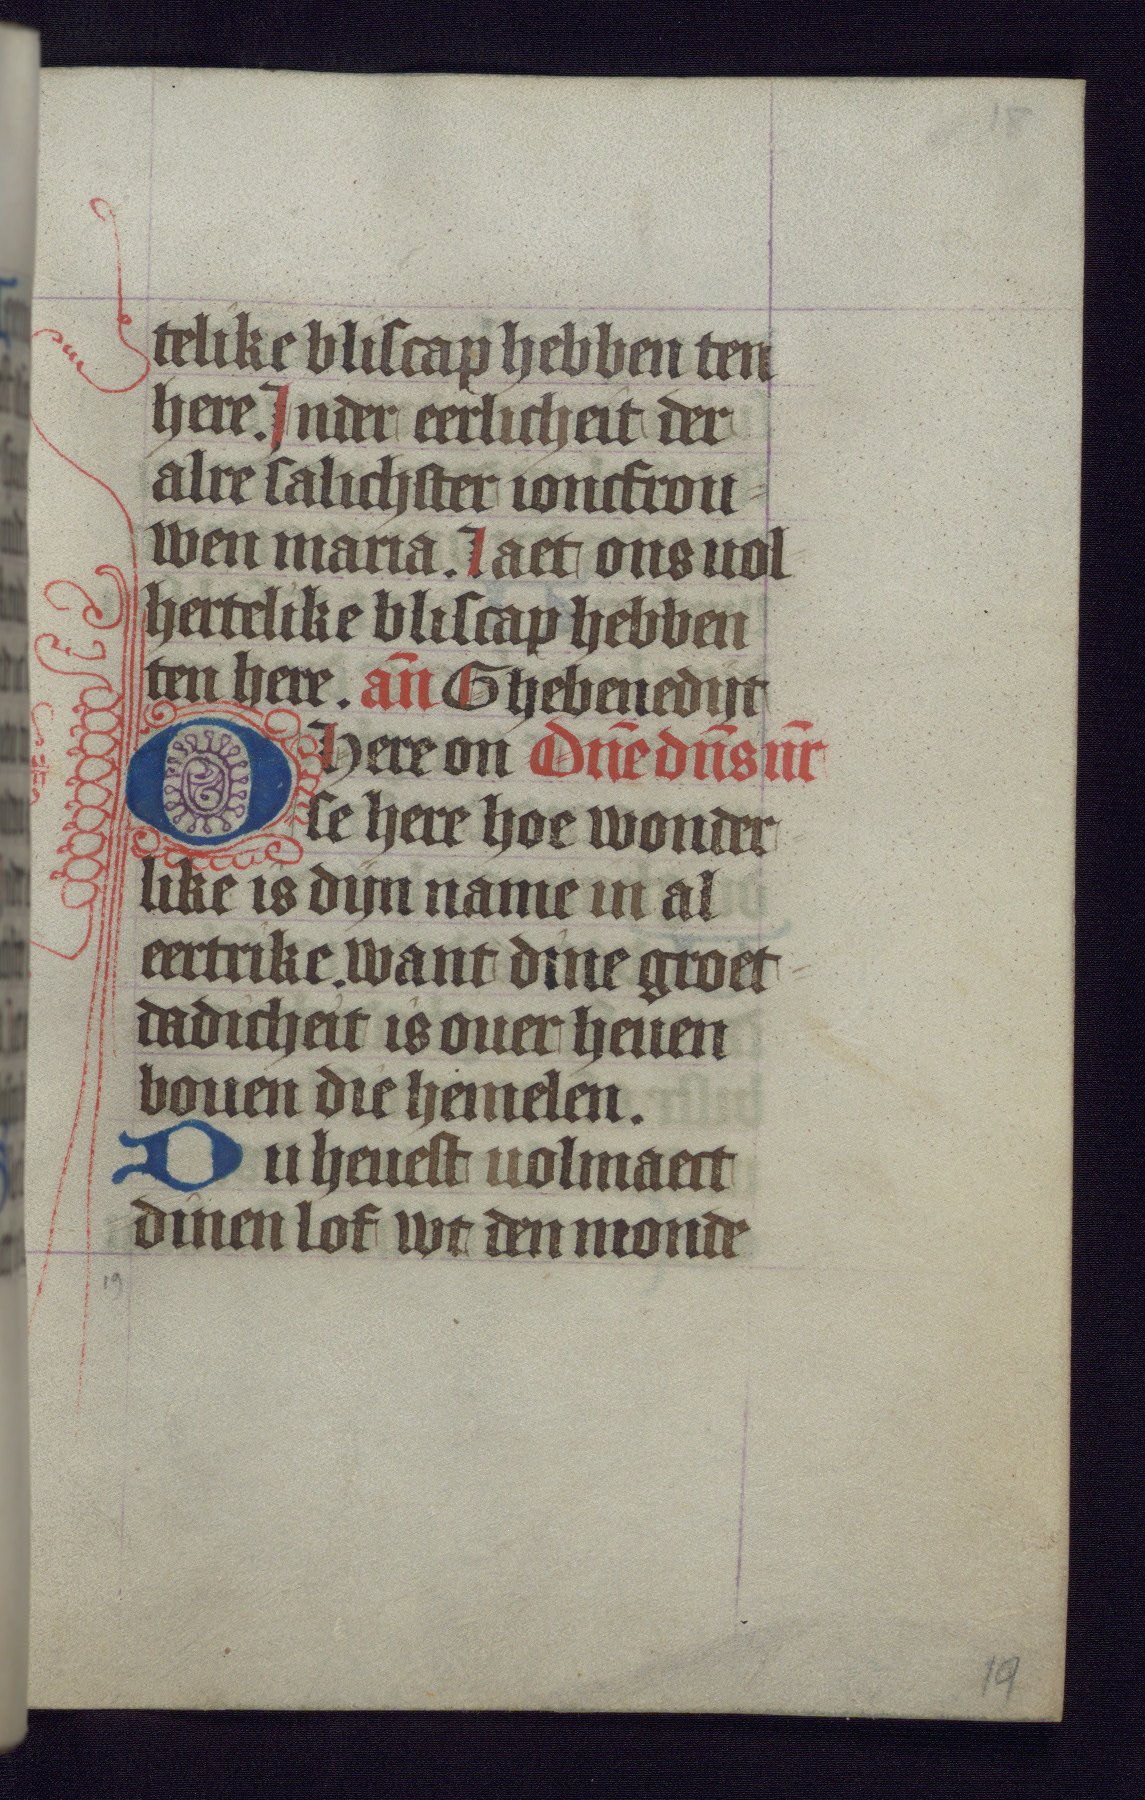 18
telike bliscap hebben ten
here. Inder eerlicheit der
alre salichster ioncfrou-
wen maria. Laet ons uol
hertelike bliscap hebben
ten here. an̄ Ghebenedijt
O here on Dn̄e dn̄s nr̄
se here hoe wonder
like is dijn name in al
eertrike. want dine groet-
dadicheit is ouer heuen
bouen die hemelen.
Du heuest uolmaect
dinen lof wt den monde
19
19